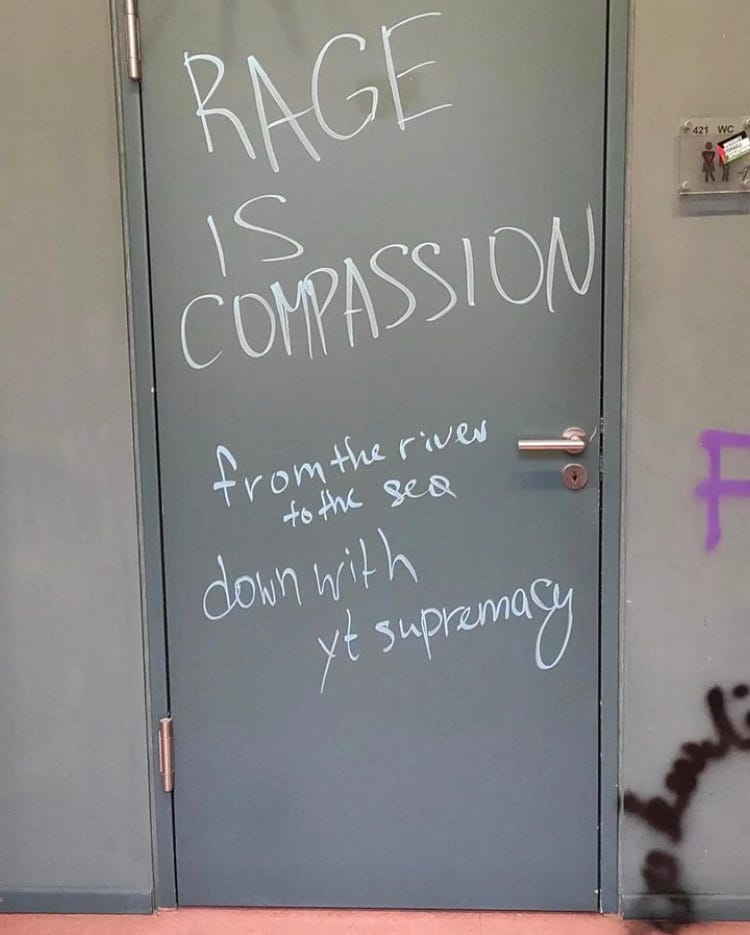 RAGE
IS
COMPASSION
from the river
to the sea
down with
yt supremacy
421 WC
F